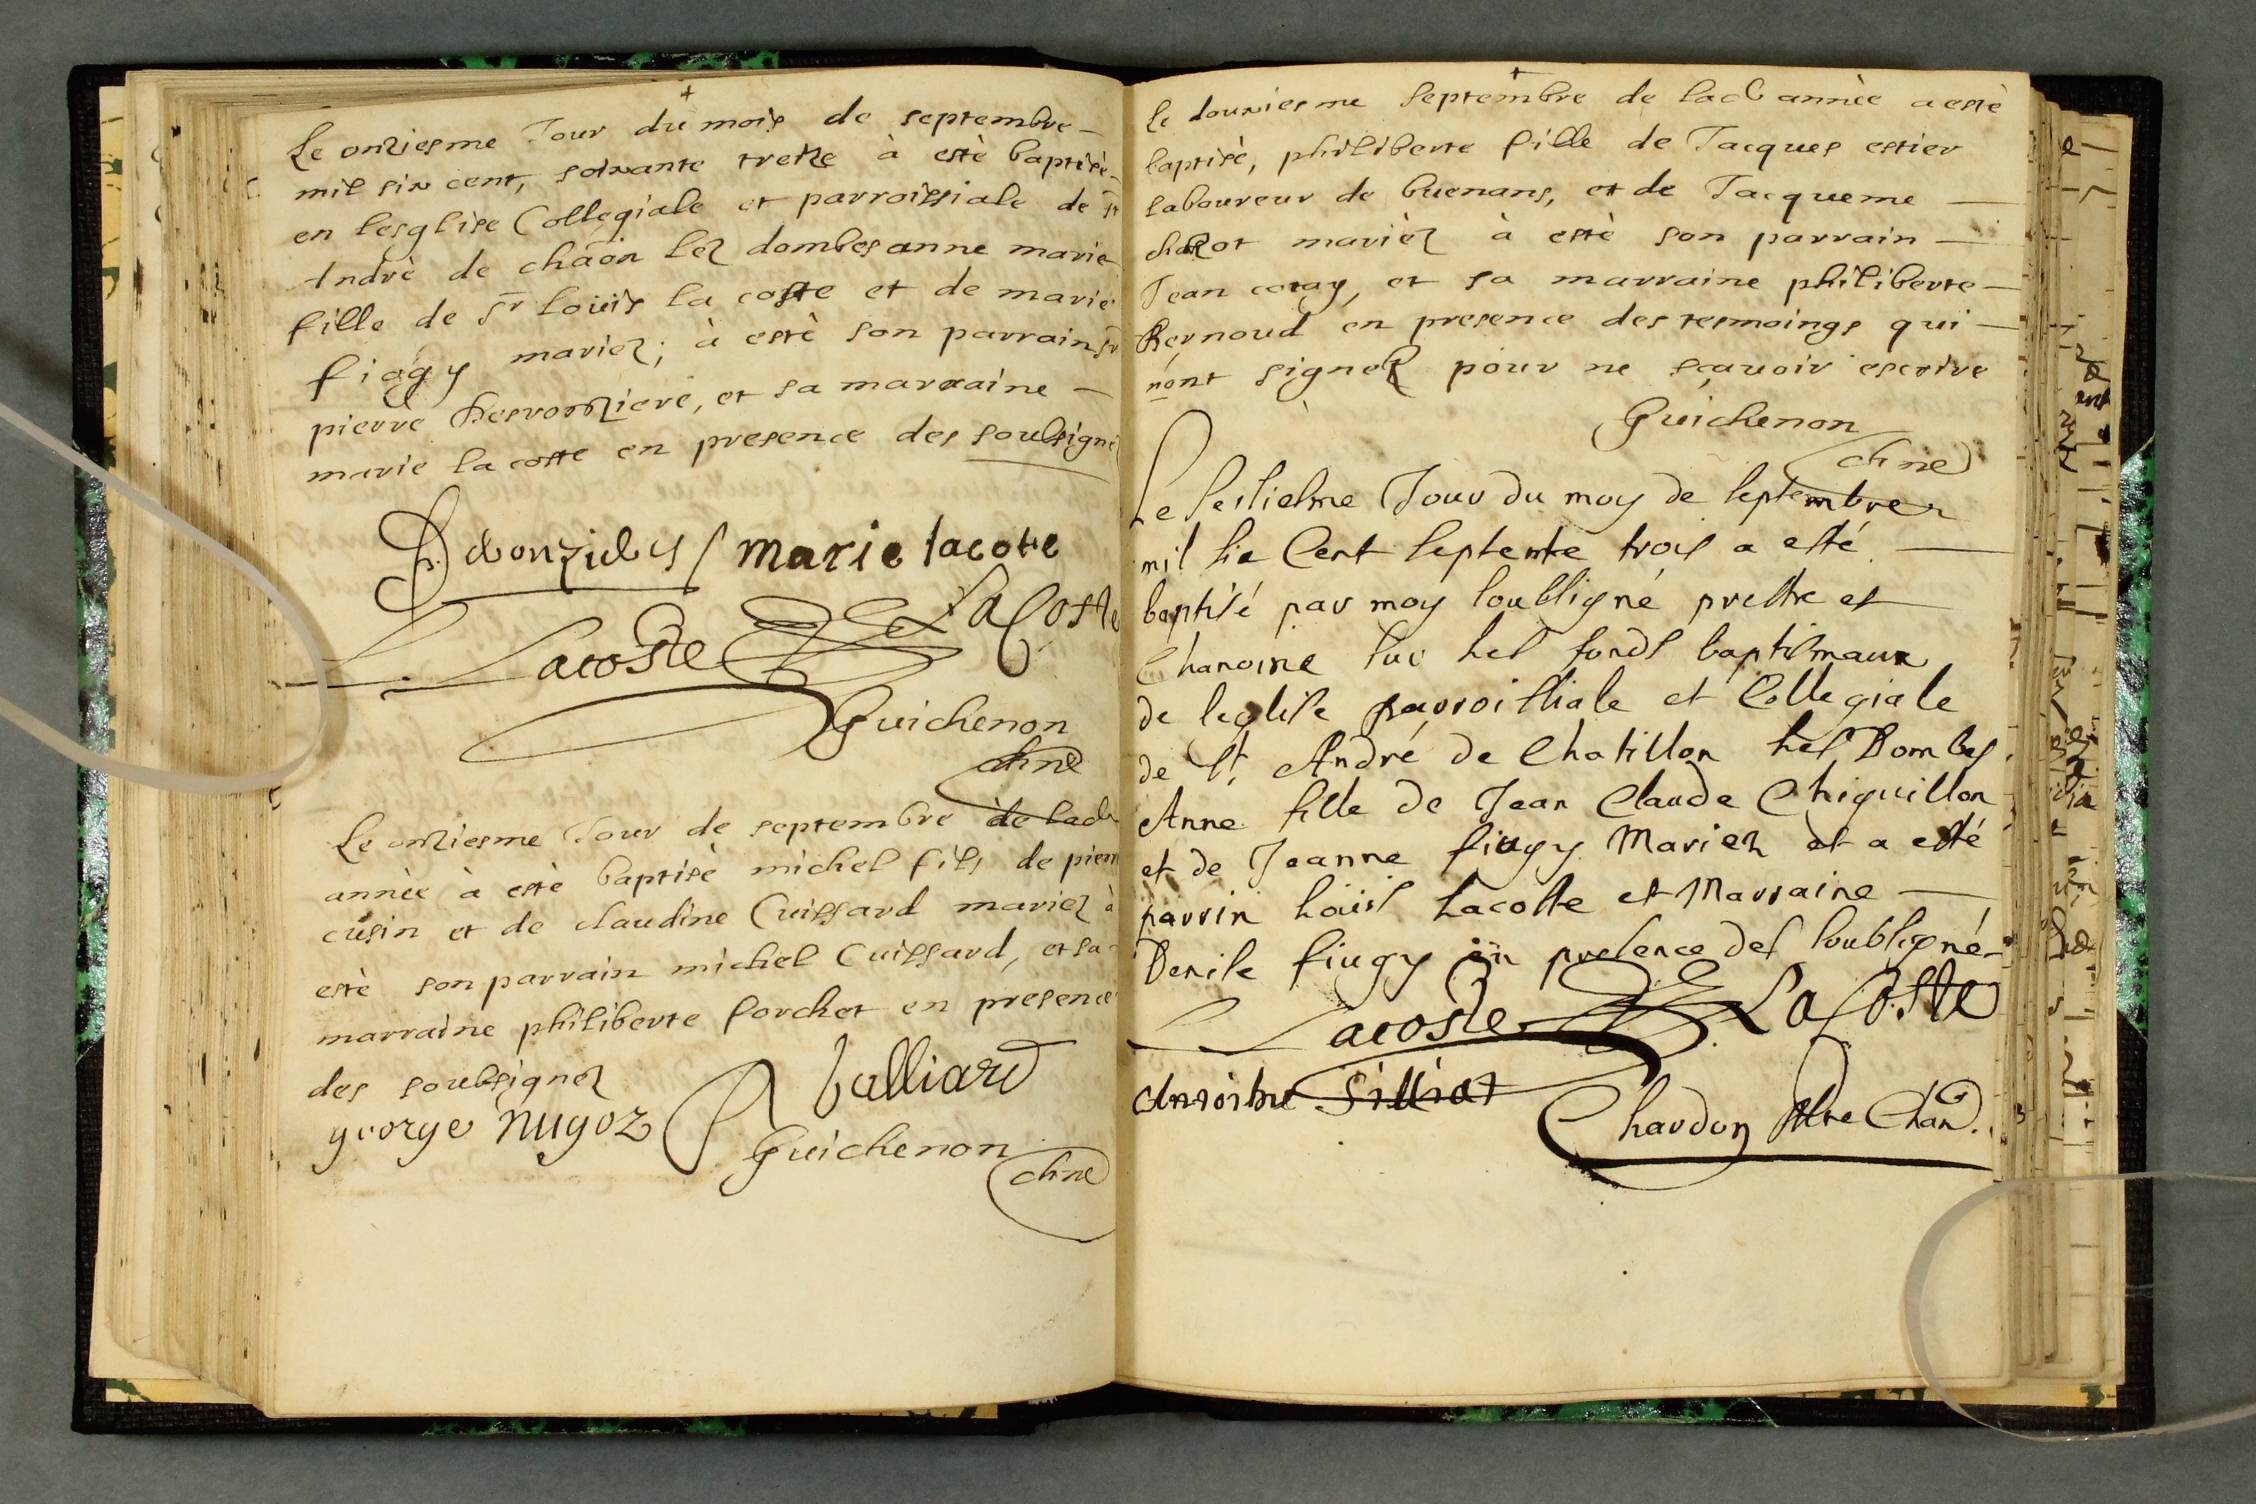 Le onziesme Jour du mois de septembre
mil six cent, soixante treze à estè baptisè
en lesglise Collegiale et parroissiale de st
Andrè de chãon lez dombes anne marie
fille de sr loüis la coste et de marie
fiagy mariez; à estè son parrain sr
pierre, et sa marraine
marie la coste en presence des soubsignè
marie lacote
Lacoste La Coste
Guichenon
chne
Le onziesme Jour de septembre de lad
annèe à estè baptisè michel fils de pierr
cusin et de claudine Cuissard mariez à
estè son parrain michel Cuissard, et sa
marraine philiberte forchet en presence
des soubsignez
george nugoz balliard
Guichenon
chne
Le douxiesme septembre de lad annèe a estè
baptisè, philiberte fille de Jacques estier
laboureur de buenans, et de Jacqueme
chazot mariez à estè son parrain
Jean coray, et sa marraine philiberte
Bernoud en presence des tesmoings qui
n'ont signez pour ne sçavoir escrire
Guichenon
chne
Le Jour du moy de septembre
mil six Cent septente trois a esté
baptisé par moy soubsigné prestre et
Chanoine sur les fonds baptismaux
de leglise parroissiale et Collegiale
de St André de Chatillon les Dombes
Anne fille de Jean Claude Chiquillon
et de Jeanne fiugy Mariez et a esté
parrin Loüis Lacoste et Marraine
Denise fiugy en presence des soubsigné
Lacoste La Coste
Antoine Silliat
Chardon Ptre Chan.